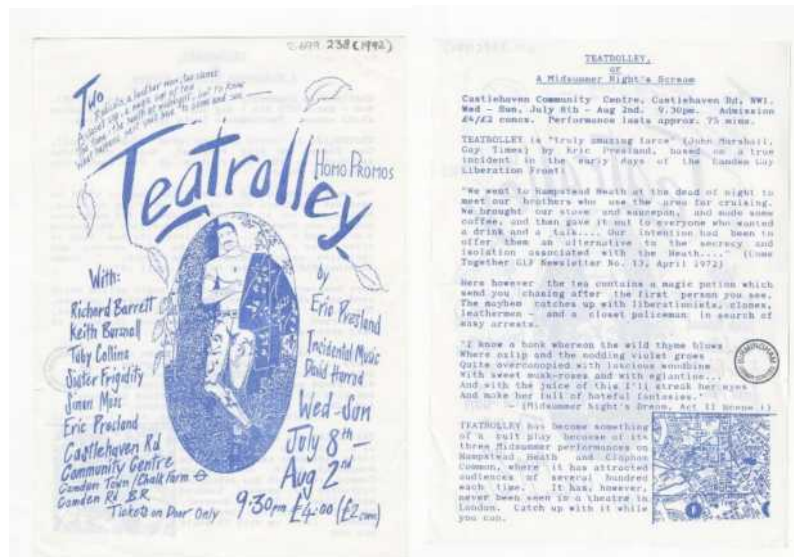 238 (1992)
Two
Radicals, a leather man, two clones
A closet cop, a magic cup of tea
What happens next you'll have to come and see
Teatrolley
HOMO PROMOS
With:
Richard Barrett
Keith Bursnall
Toby Collins
Sister Frigidity
Simon Moss
Eric Presland
by
Eric Presland
Incidental Music
David Harrod
Castlehaven Rd
Community Centre
Camden Town / Chalk Farm
Camden Rd BR
Tickets on Door Only
Wed-Sun
July 8th -
Aug 2nd
9.30pm £4.00 (£2 conc)
TEATROLLEY,
or
A Midsummer Night's Scream
Castlehaven Community Centre, Castlehaven Rd, NW1.
Wed - Sun, July 8th - Aug 2nd. 9.30pm. Admission
£4/£2 concs. Performance lasts approx. 75 mins.
TEATROLLEY is "truly amazing farce" (John Marshall,
Gay Times) by Eric Presland, based on a true
incident in the early days of the Camden Gay
Liberation Front:
"We went to Hampstead Heath at the dead of night to
meet our brothers who use the area for cruising.
We brought our stove and saucepan, and made some
coffee, and then gave it out to everyone who wanted
a drink and a talk.... Our intention had been to
offer them an alternative to the secrecy and
isolation associated with the Heath...." (Come
Together GLF Newsletter No. 13, April 1972)
Here however the tea contains a magic potion which
send you chasing after the first person you see.
The mayhem catches up with liberationists, clones,
leathermen - and a closet policeman in search of
easy arrests.
"I know a bank whereon the wild thyme blows
Where oxlip and the nodding violet grows
Quite overcanopied with luscious woodbine
With sweet musk-roses and with eglantine...
And with the juice of this I'll streak her eyes
And make her full of hateful fantasies."
- (Midsummer Night's Dream, Act II Scene i)
TEATROLLEY has become something
of a cult play because of its
three Midsummer performances on
Hampstead Heath and Clapham
Common, where it has attracted
audiences of several hundred
each time. It has, however,
never been seen in a theatre in
London. Catch up with it while
you can.
BIRMINGHAM